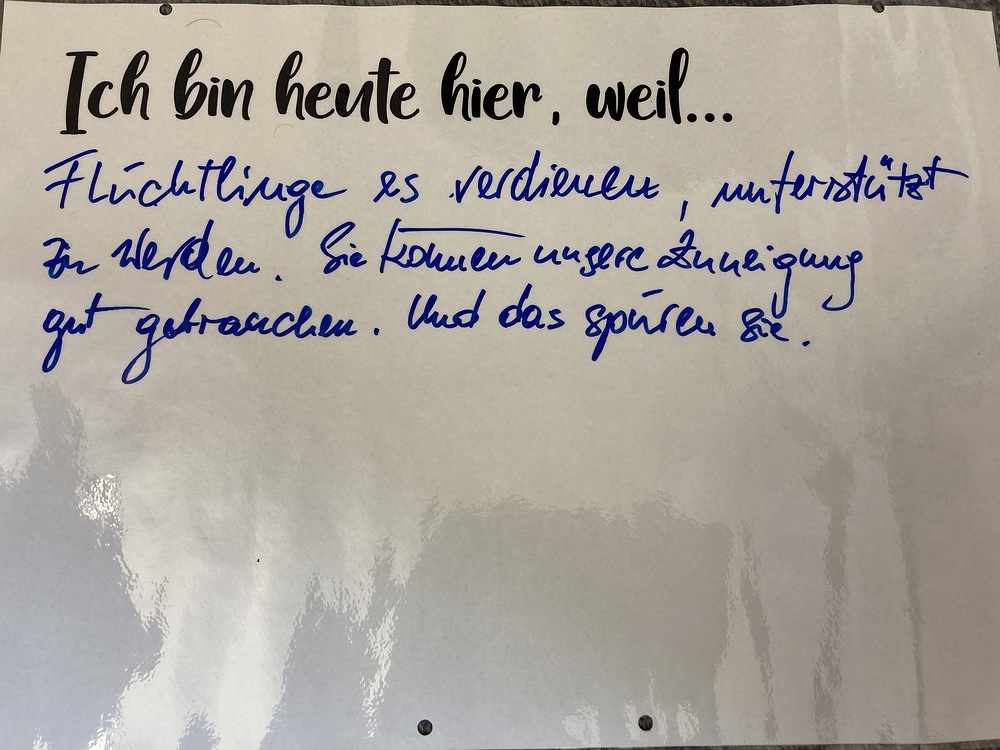 Ich bin heute hier, weil...
Flüchtlinge es verdienen, unterstützt
zu werden. Sie können unsere Zuneigung
gut gebrauchen. Und das spüren sie.